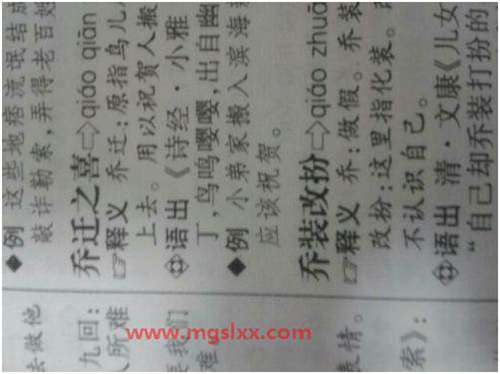 ◆例 这些地痞流氓结成
敲诈勒索,弄得老百姓
乔迁之喜⇨qiáo qiān
☞释义 乔迁:原指鸟儿
上去。用以祝贺人搬
语出 《诗经·小雅
丁,鸟鸣嘤嘤,出自幽
◆例 小弟家搬入滨海
应该祝贺。
乔装改扮⇨qiáo zhuā
☞释义 乔:做假。乔装
改扮:这里指化装。
不认识自己。
语出 清·文康《儿女
“自己却乔装打扮的
去做他
九回:
人所难
我们
难
表情。
索》:
www.mgslxx.com